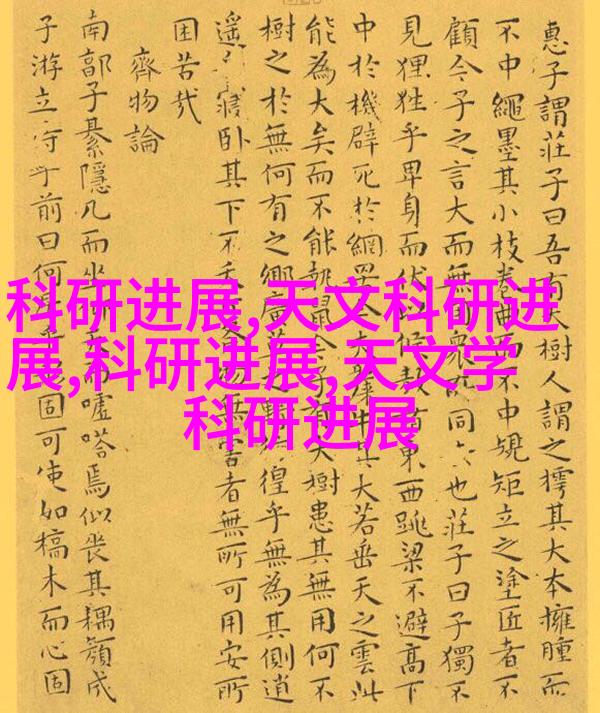 科研进展,天文科研进
展,科研进展,天文学
科研进展
惠子謂莊子曰吾有大樹人謂之樗其大本擁腫而
不中繩墨其小枝卷曲而不中規矩立之塗匠者不
顧今子之言大而無用衆所同去也莊子曰子獨不
見狸狌乎卑身而伏以候敖者東西跳梁不避高下
中於機辟死於網罟今夫斄牛其大若垂天之雲此
能為大矣而不能執鼠今子有大樹患其無用何不
樹之於無何有之鄉廣莫之野彷徨乎無為其側逍
遙寢卧其下不夭斤斧物無害者無所可用安所
困苦哉
齊物論
南郭子綦隱几而坐仰天而噓嗒焉似喪其耦顏成
子游立侍乎前曰何居乎形固可使如槁木而心固